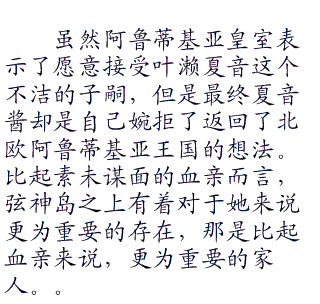 虽然阿鲁蒂基亚皇室表
示了愿意接受叶濑夏音这个
不洁的子嗣，但是最终夏音
酱却是自己婉拒了返回了北
欧阿鲁蒂基亚王国的想法。
比起素未谋面的血亲而言，
弦神岛之上有着对于她来说
更为重要的存在，那是比起
血亲来说，更为重要的家
人。。